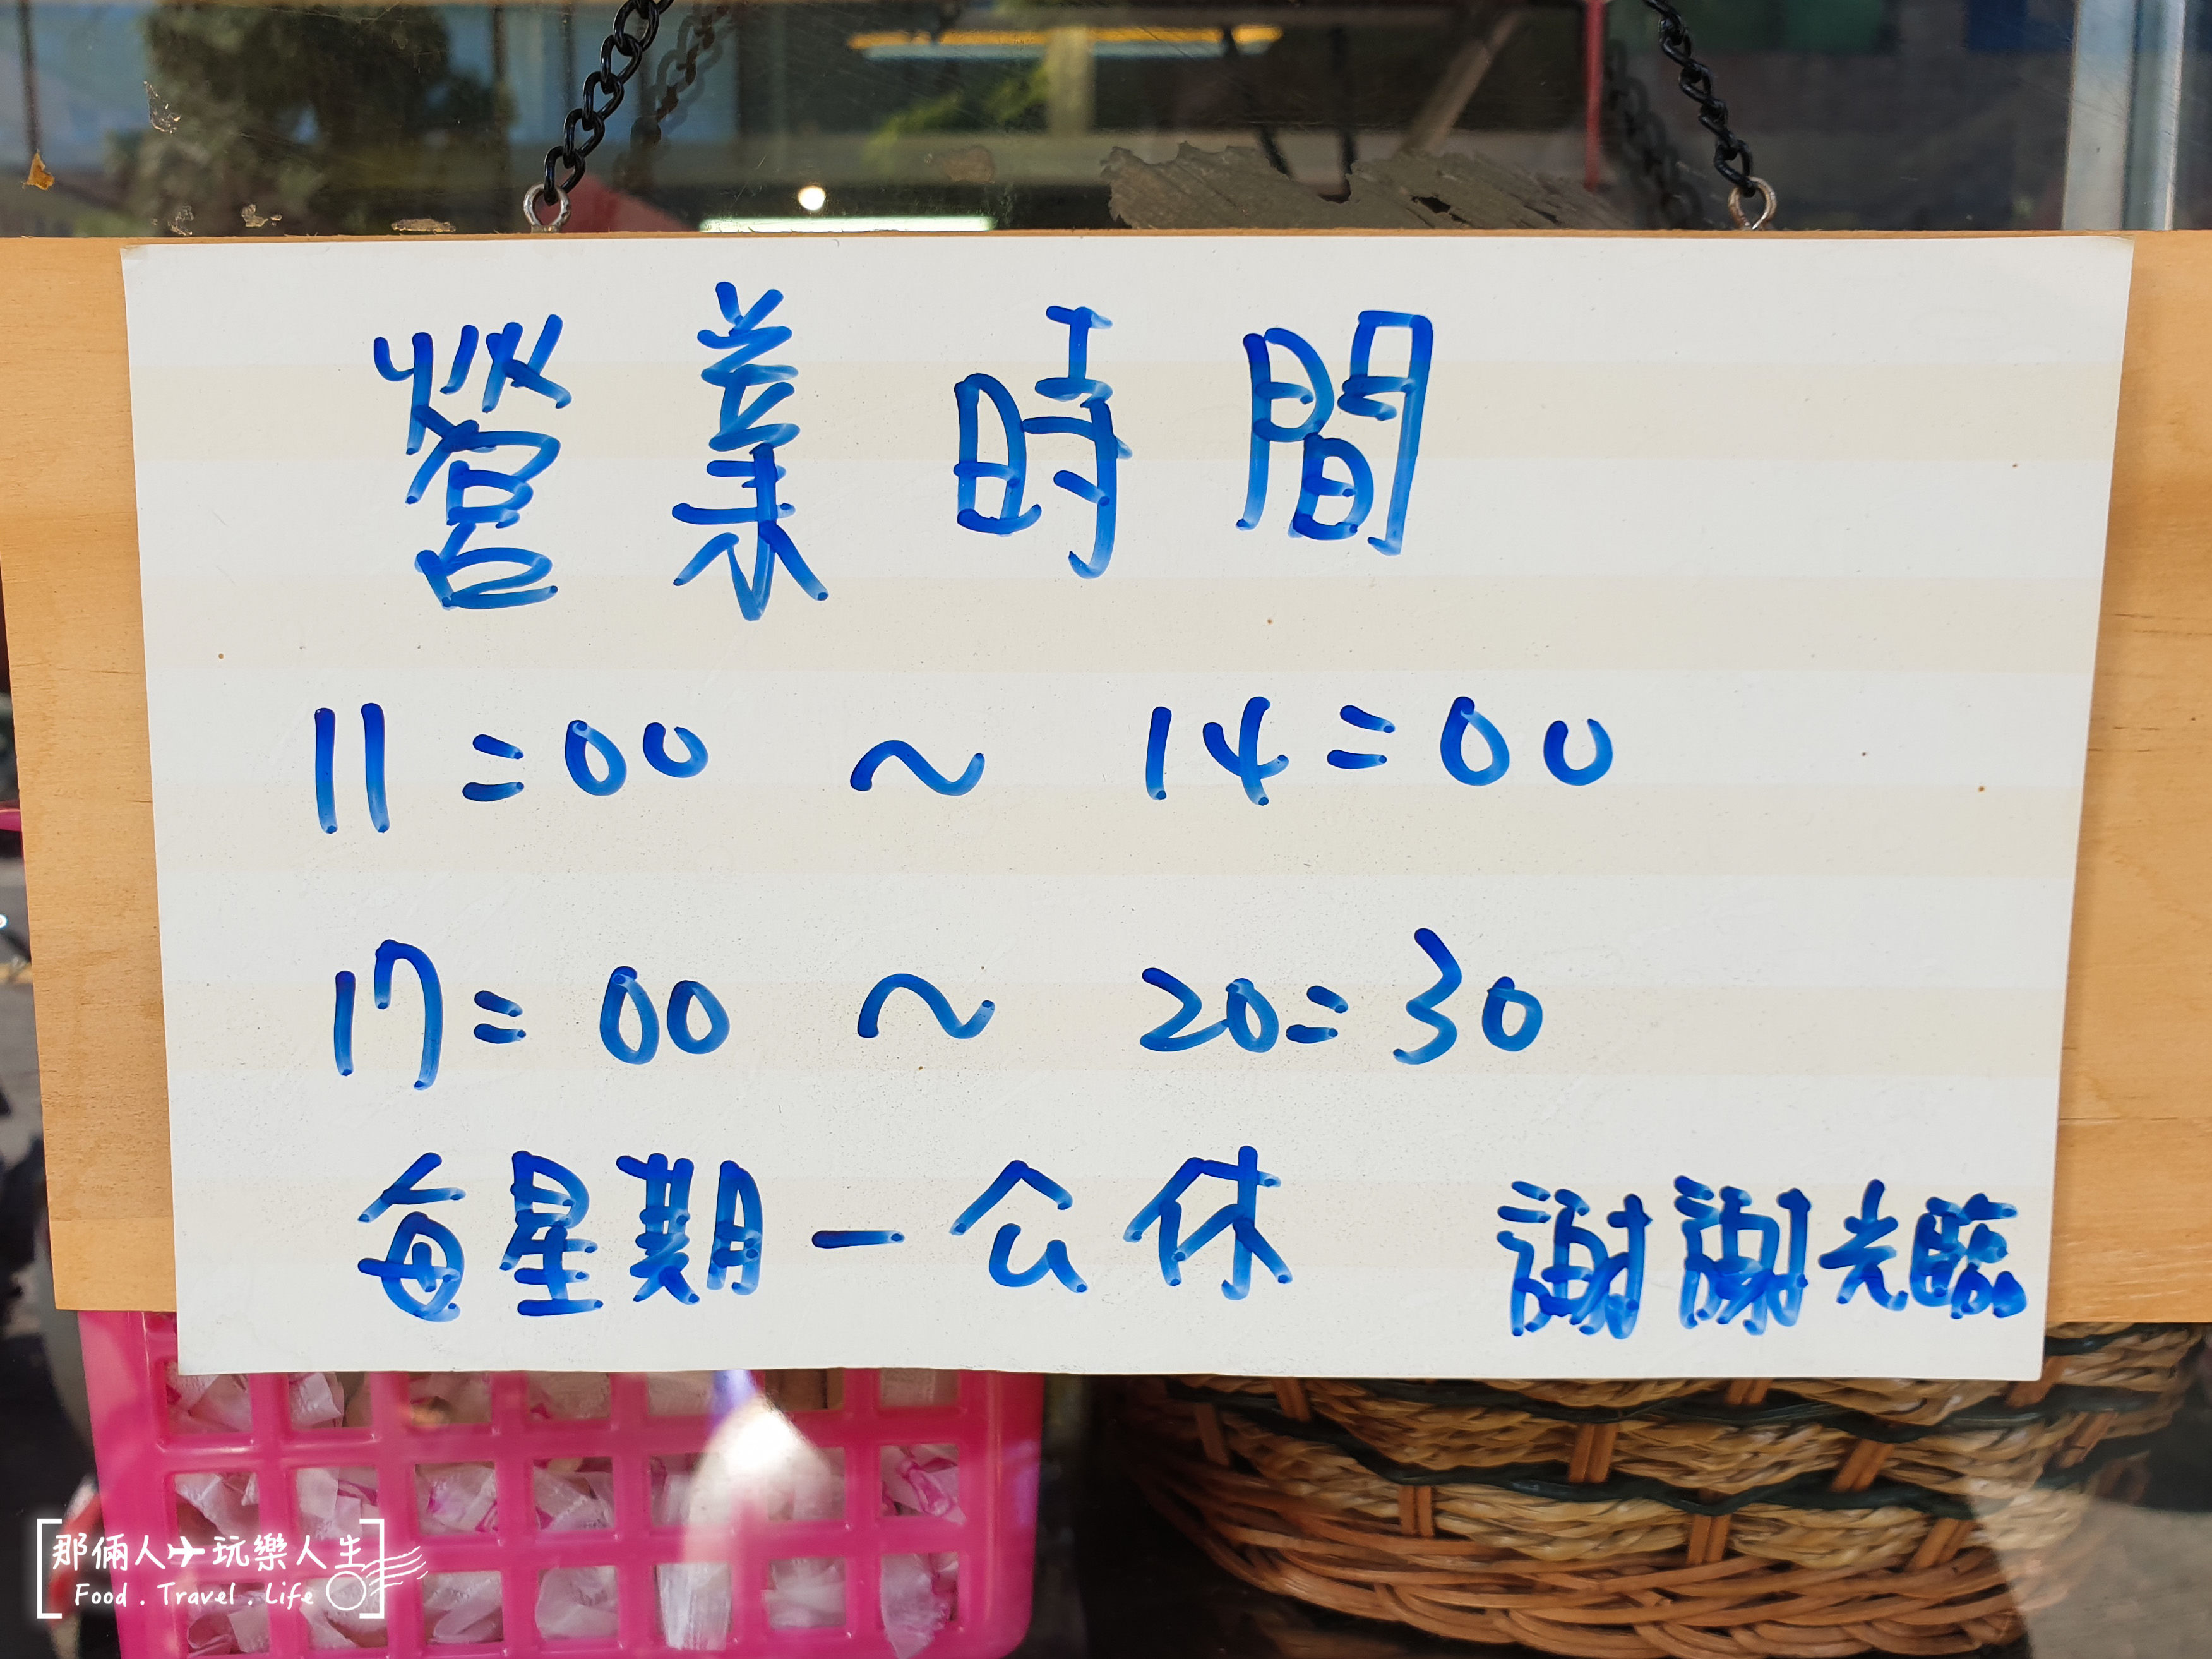 營業時間
11:00 ~ 14:00
17:00 ~ 20:30
每星期一公休 謝謝光臨
那倆人✈玩樂人生
Food . Travel . Life